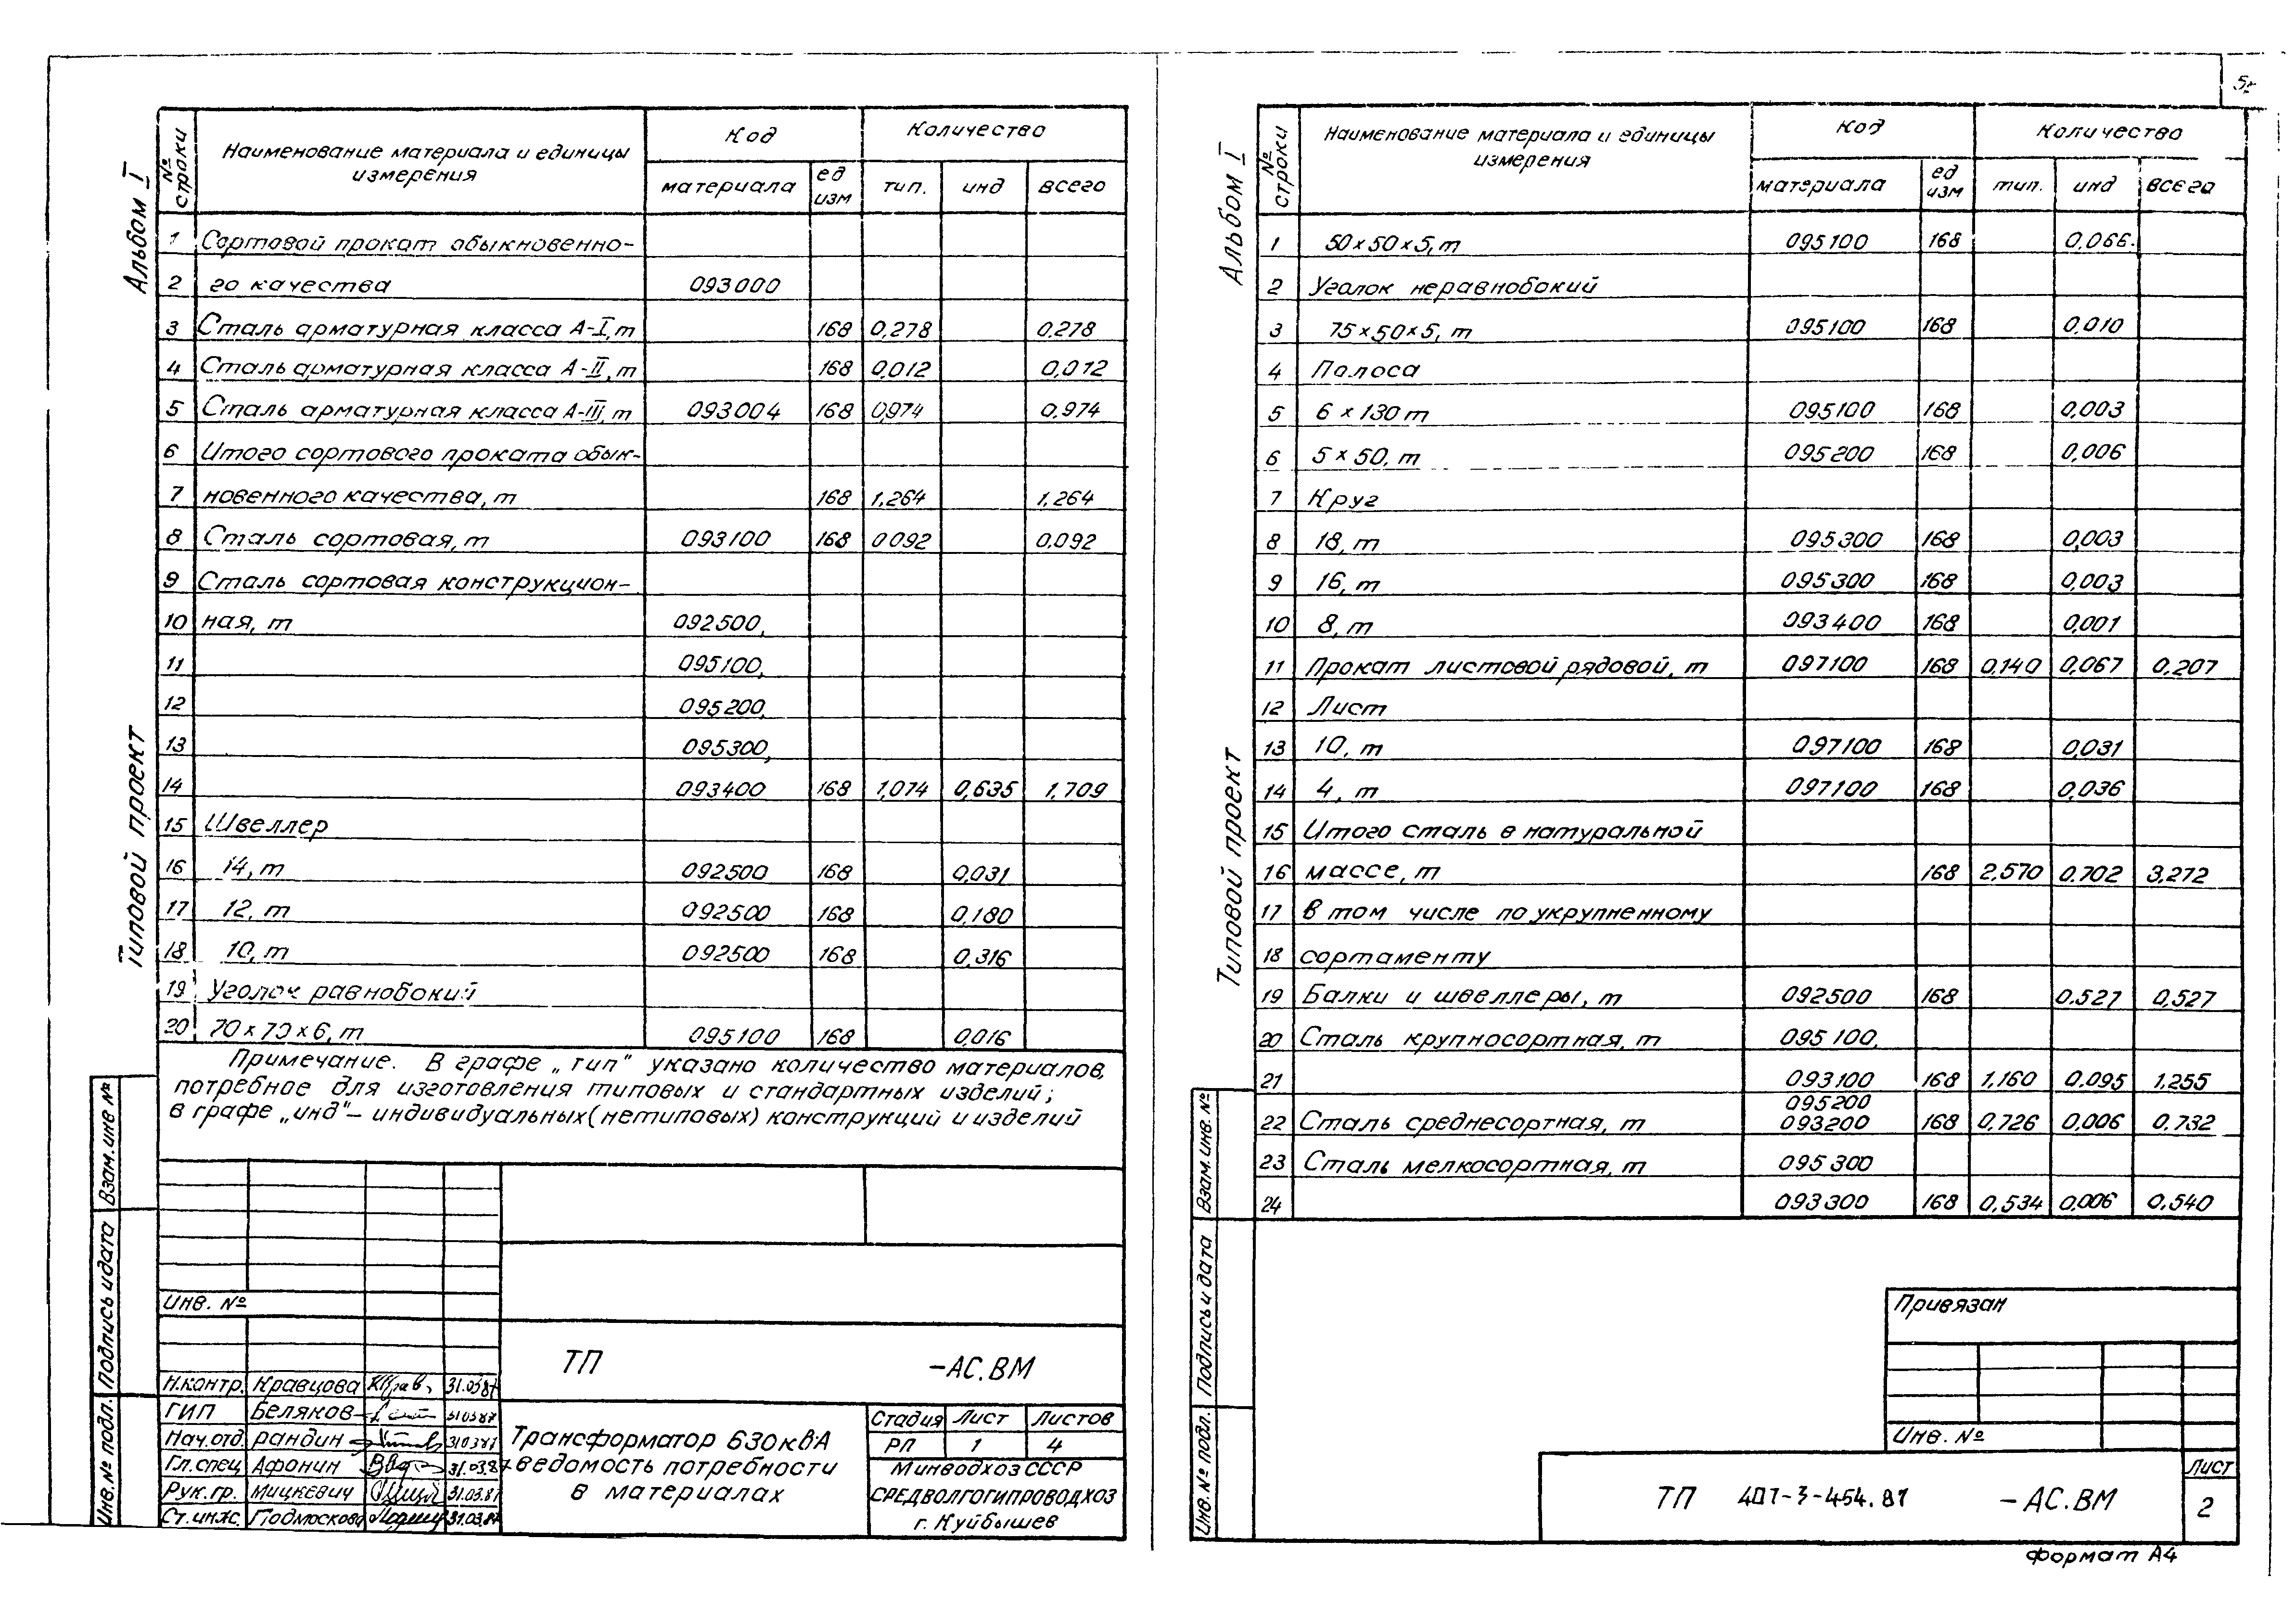 Альбом I
Типовой проект
№ строки
Наименование материала и единицы измерения
Код
Количество
материала
ед изм
тип.
инд
всего
1 Сортовой прокат обыкновенно-
2 го качества 093000
3 Сталь арматурная класса А-I, т 168 0,278 0.278
4 Сталь арматурная класса А-II, т 168 0,012 0,012
5 Сталь арматурная класса А-III, т 093004 168 0,974 0,974
6 Итого сортового проката обык-
7 новенного качества, т 168 1,264 1,264
8 Сталь сортовая, т 093100 168 0092 0.092
9 Сталь сортовая конструкцион-
10 ная, т 092500,
11 095100,
12 095200,
13 095300,
14 093400 168 1,074 0,635 1,709
15 Швеллер
16 14, т 092500 168 0,031
17 12, т 092500 168 0,180
18 10, т 092500 168 0,316
19 Уголок равнобокий
20 70×70×6, т 095100 168 0,016
Примечание. В графе „тип" указано количество материалов,
потребное для изготовления типовых и стандартных изделий;
в графе „инд"– индивидуальных (нетиповых) конструкций и изделий
Взам. инв №
Подпись и дата
Инв. № подл.
Инв. №
ТП -АС.ВМ
Н.контр. Кравцова 31.03.87
ГИП Беляков 310387
Нач.отд. Рандин 310387
Гл.спец Афонин 31.03.87
Рук.гр. Мицкевич 31.03.87
Ст.инж. Подмоскова 31.03.87
Трансформатор 630кВА
Ведомость потребности
в материалах
Стадия Лист Листов
РП 1 4
Минводхоз СССР
СРЕДВОЛГОГИПРОВОДХОЗ
г. Куйбышев
Альбом I
Типовой проект
№ строки
Наименование материала и единицы измерения
Код
Количество
материала
ед изм
тип.
инд
всего
1 50×50×5, т 095100 168 0,066.
2 Уголок неравнобокий
3 75×50×5, т 095100 168 0,010
4 Полоса
5 6×130 т 095100 168 0,003
6 5×50, т 095200 168 0,006
7 Круг
8 18, т 095300 168 0,003
9 16, т 095300 168 0,003
10 8, т 093400 168 0,001
11 Прокат листовой рядовой, т 097100 168 0,140 0,067 0,207
12 Лист
13 10, т 097100 168 0,031
14 4, т 097100 168 0,036
15 Итого сталь в натуральной
16 массе, т 168 2,570 0.702 3,272
17 в том числе по укрупненному
18 сортаменту
19 Балки и швеллеры, т 092500 168 0.527 0,527
20 Сталь крупносортная, т 095100,
21 093100 168 1,160 0.095 1.255
095200
22 Сталь среднесортная, т 093200 168 0,726 0,006 0.732
23 Сталь мелкосортная, т 095300
24 093300 168 0,534 0,006 0.540
Взам. инв. №
Подпись и дата
Инв. № подл.
Привязан
Инв. №
ТП 407-3-454.87 -АС.ВМ
Лист
2
формат А4